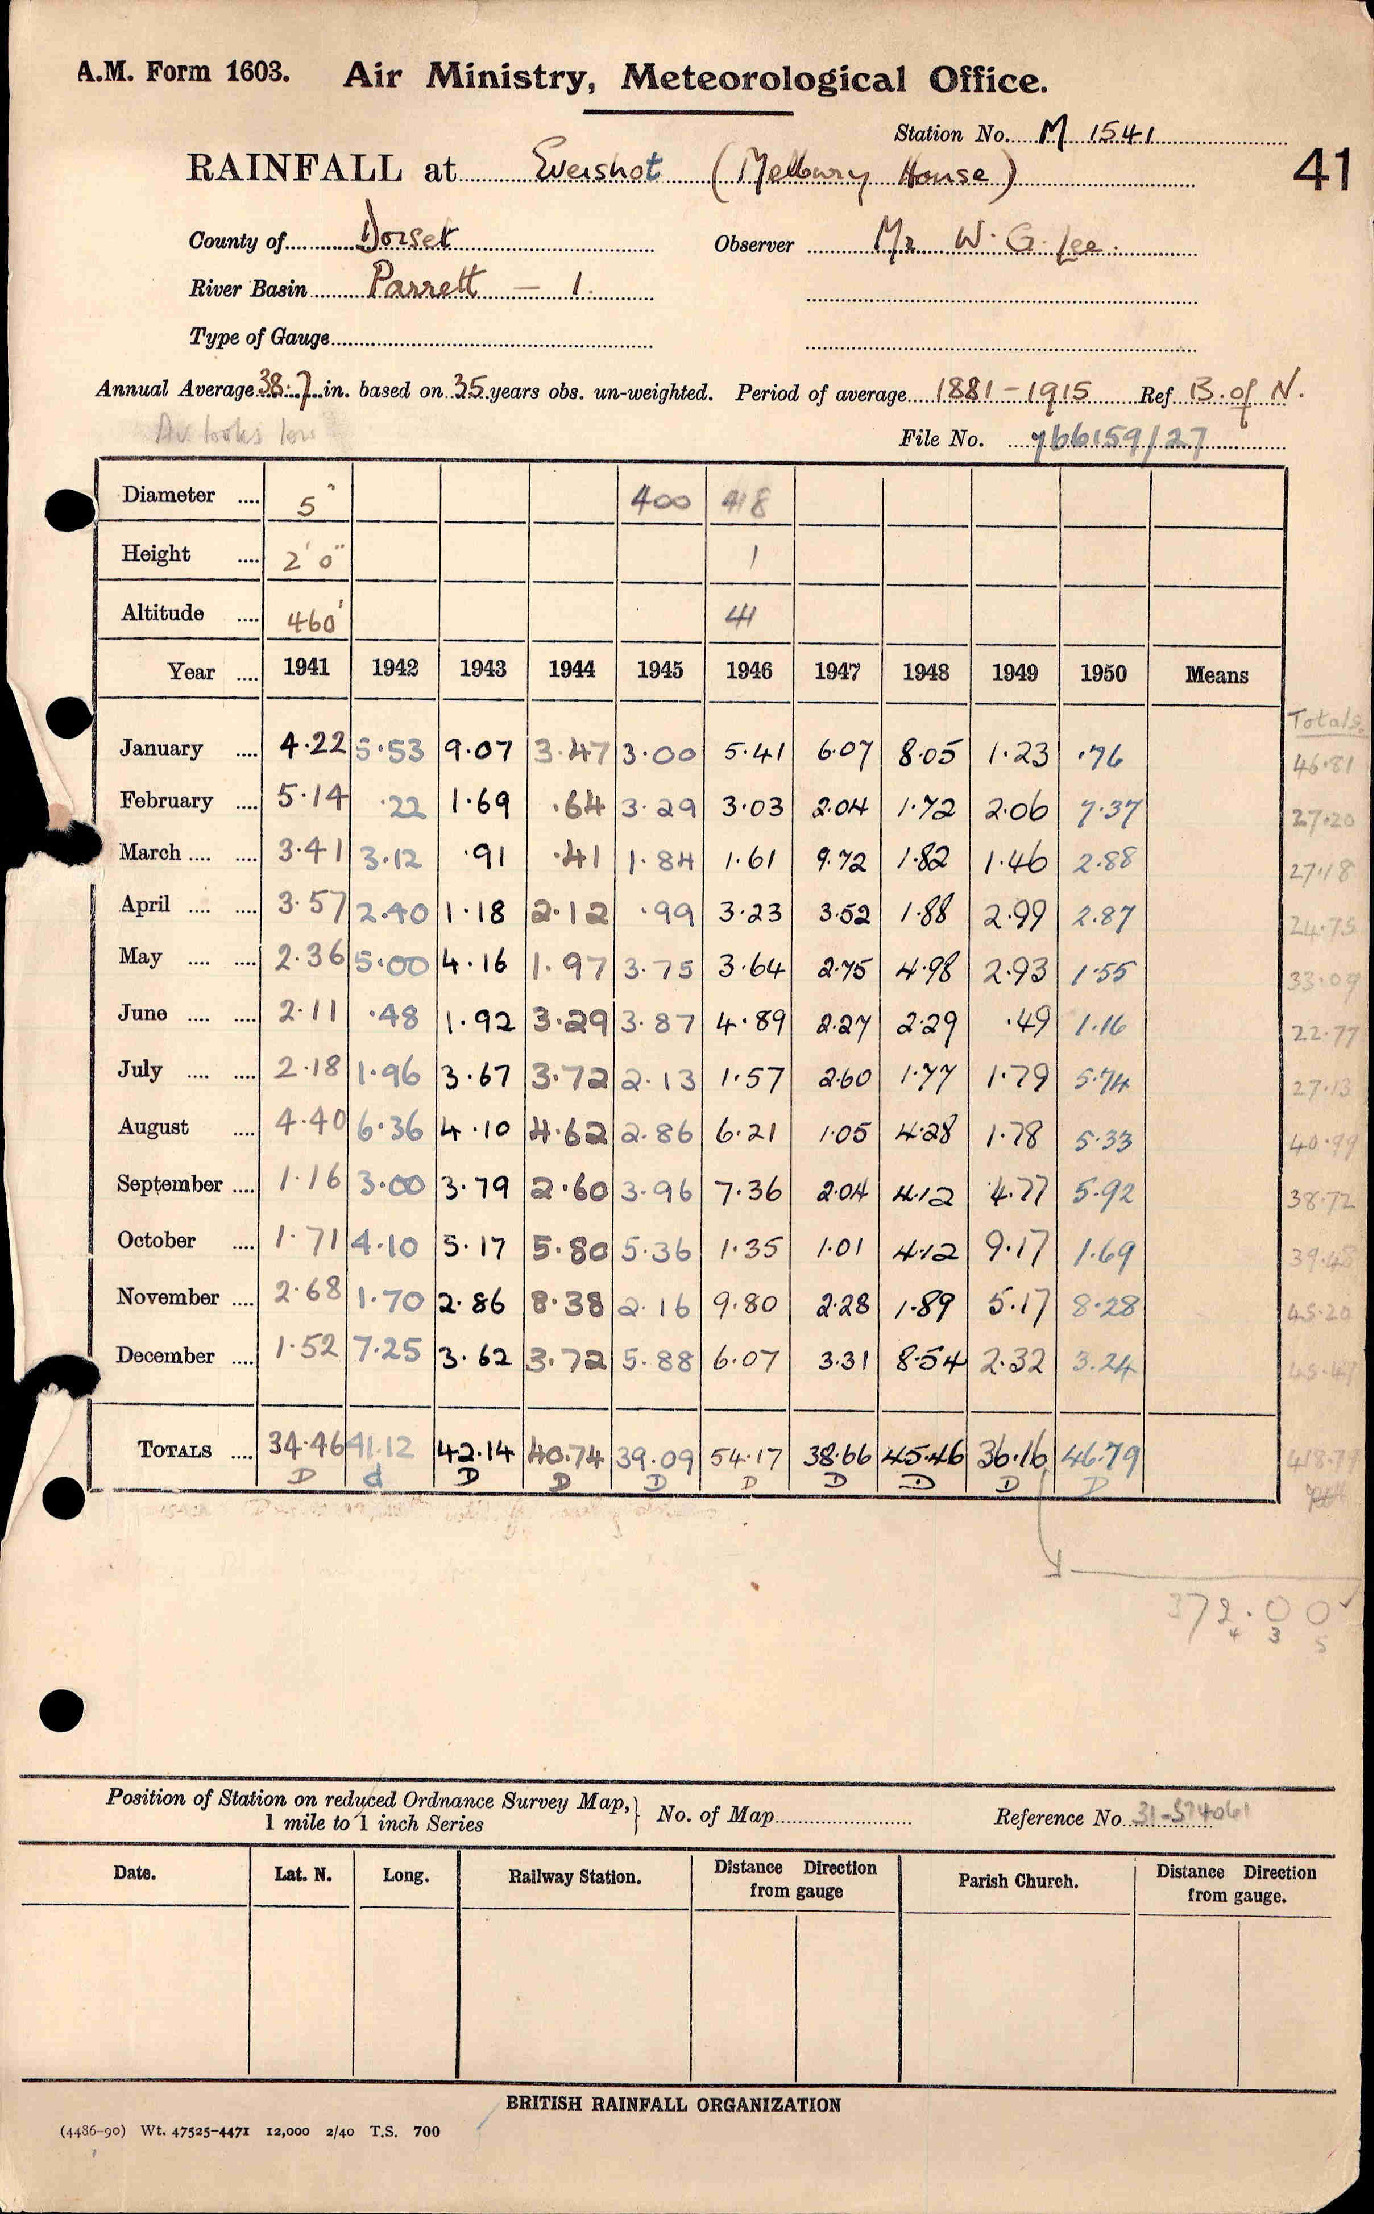 A.M. Form 1603. Air Ministry, Meteorological Office.
Station No. M 1541
RAINFALL at Evershot (Melbury House)
41
County of Dorset Observer Mr W. G. Lee.
River Basin Parrett - 1.
Type of Gauge
Annual Average 38.7 in. based on 35 years obs. un-weighted. Period of average 1881-1915 Ref B. of N.
Av looks low
File No. 766159/27
Diameter .... 5" 400 418
Height .... 2' 0" 1
Altitude .... 460' 41
Year .... 1941 1942 1943 1944 1945 1946 1947 1948 1949 1950 Means
Totals.
January .... 4.22 5.53 9.07 3.47 3.00 5.41 6.07 8.05 1.23 .76 46.81
February .... 5.14 .22 1.69 .64 3.29 3.03 2.04 1.72 2.06 7.37 27.20
March .... .... 3.41 3.12 .91 .41 1.84 1.61 9.72 1.82 1.46 2.88 27.18
April .... .... 3.57 2.40 1.18 2.12 .99 3.23 3.52 1.88 2.99 2.87 24.75
May .... .... 2.36 5.00 4.16 1.97 3.75 3.64 2.75 4.98 2.93 1.55 33.09
June .... .... 2.11 .48 1.92 3.29 3.87 4.89 2.27 2.29 .49 1.16 22.77
July .... .... 2.18 1.96 3.67 3.72 2.13 1.57 2.60 1.77 1.79 5.74 27.13
August .... 4.40 6.36 4.10 4.62 2.86 6.21 1.05 4.28 1.78 5.33 40.99
September .... 1.16 3.00 3.79 2.60 3.96 7.36 2.04 4.12 4.77 5.92 38.72
October .... 1.71 4.10 5.17 5.80 5.36 1.35 1.01 4.12 9.17 1.69 39.48
November .... 2.68 1.70 2.86 8.38 2.16 9.80 2.28 1.89 5.17 8.28 45.20
December .... 1.52 7.25 3.62 3.72 5.88 6.07 3.31 8.54 2.32 3.24 45.47
TOTALS .... 34.46 41.12 42.14 40.74 39.09 54.17 38.66 45.46 36.16 46.79 418.79
D d D D D D D D D D
372.00
4 3 5
Position of Station on reduced Ordnance Survey Map, } No. of Map Reference No. 31-574061
1 mile to 1 inch Series
Date. Lat. N. Long. Railway Station. Distance Direction from gauge Parish Church. Distance Direction from gauge.
BRITISH RAINFALL ORGANIZATION
(4486-90) Wt. 47525-4471 12,000 2/40 T.S. 700